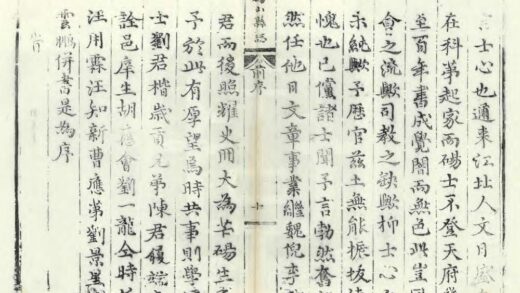 士心也邇来江北人文日盛
在科第起家而碭士不登天府
至百年書成覺闇而無色此豈
會之流歟司教之缺歟抑士心
歟予歷官茲土無能振拔
愧也已儻諸士聞予言勃然奮
然任他日文章事業繼魏倪李
山縣誌 前序 十
君而後照耀史冊大為芒碭生
予於此有厚望焉時共事則學
士劉君楷歲貢兄弟陳君履端
詮邑庠生胡應會劉一龍仝時
汪用霖汪知新曹應第劉景
雲鵬併書是為序
旹